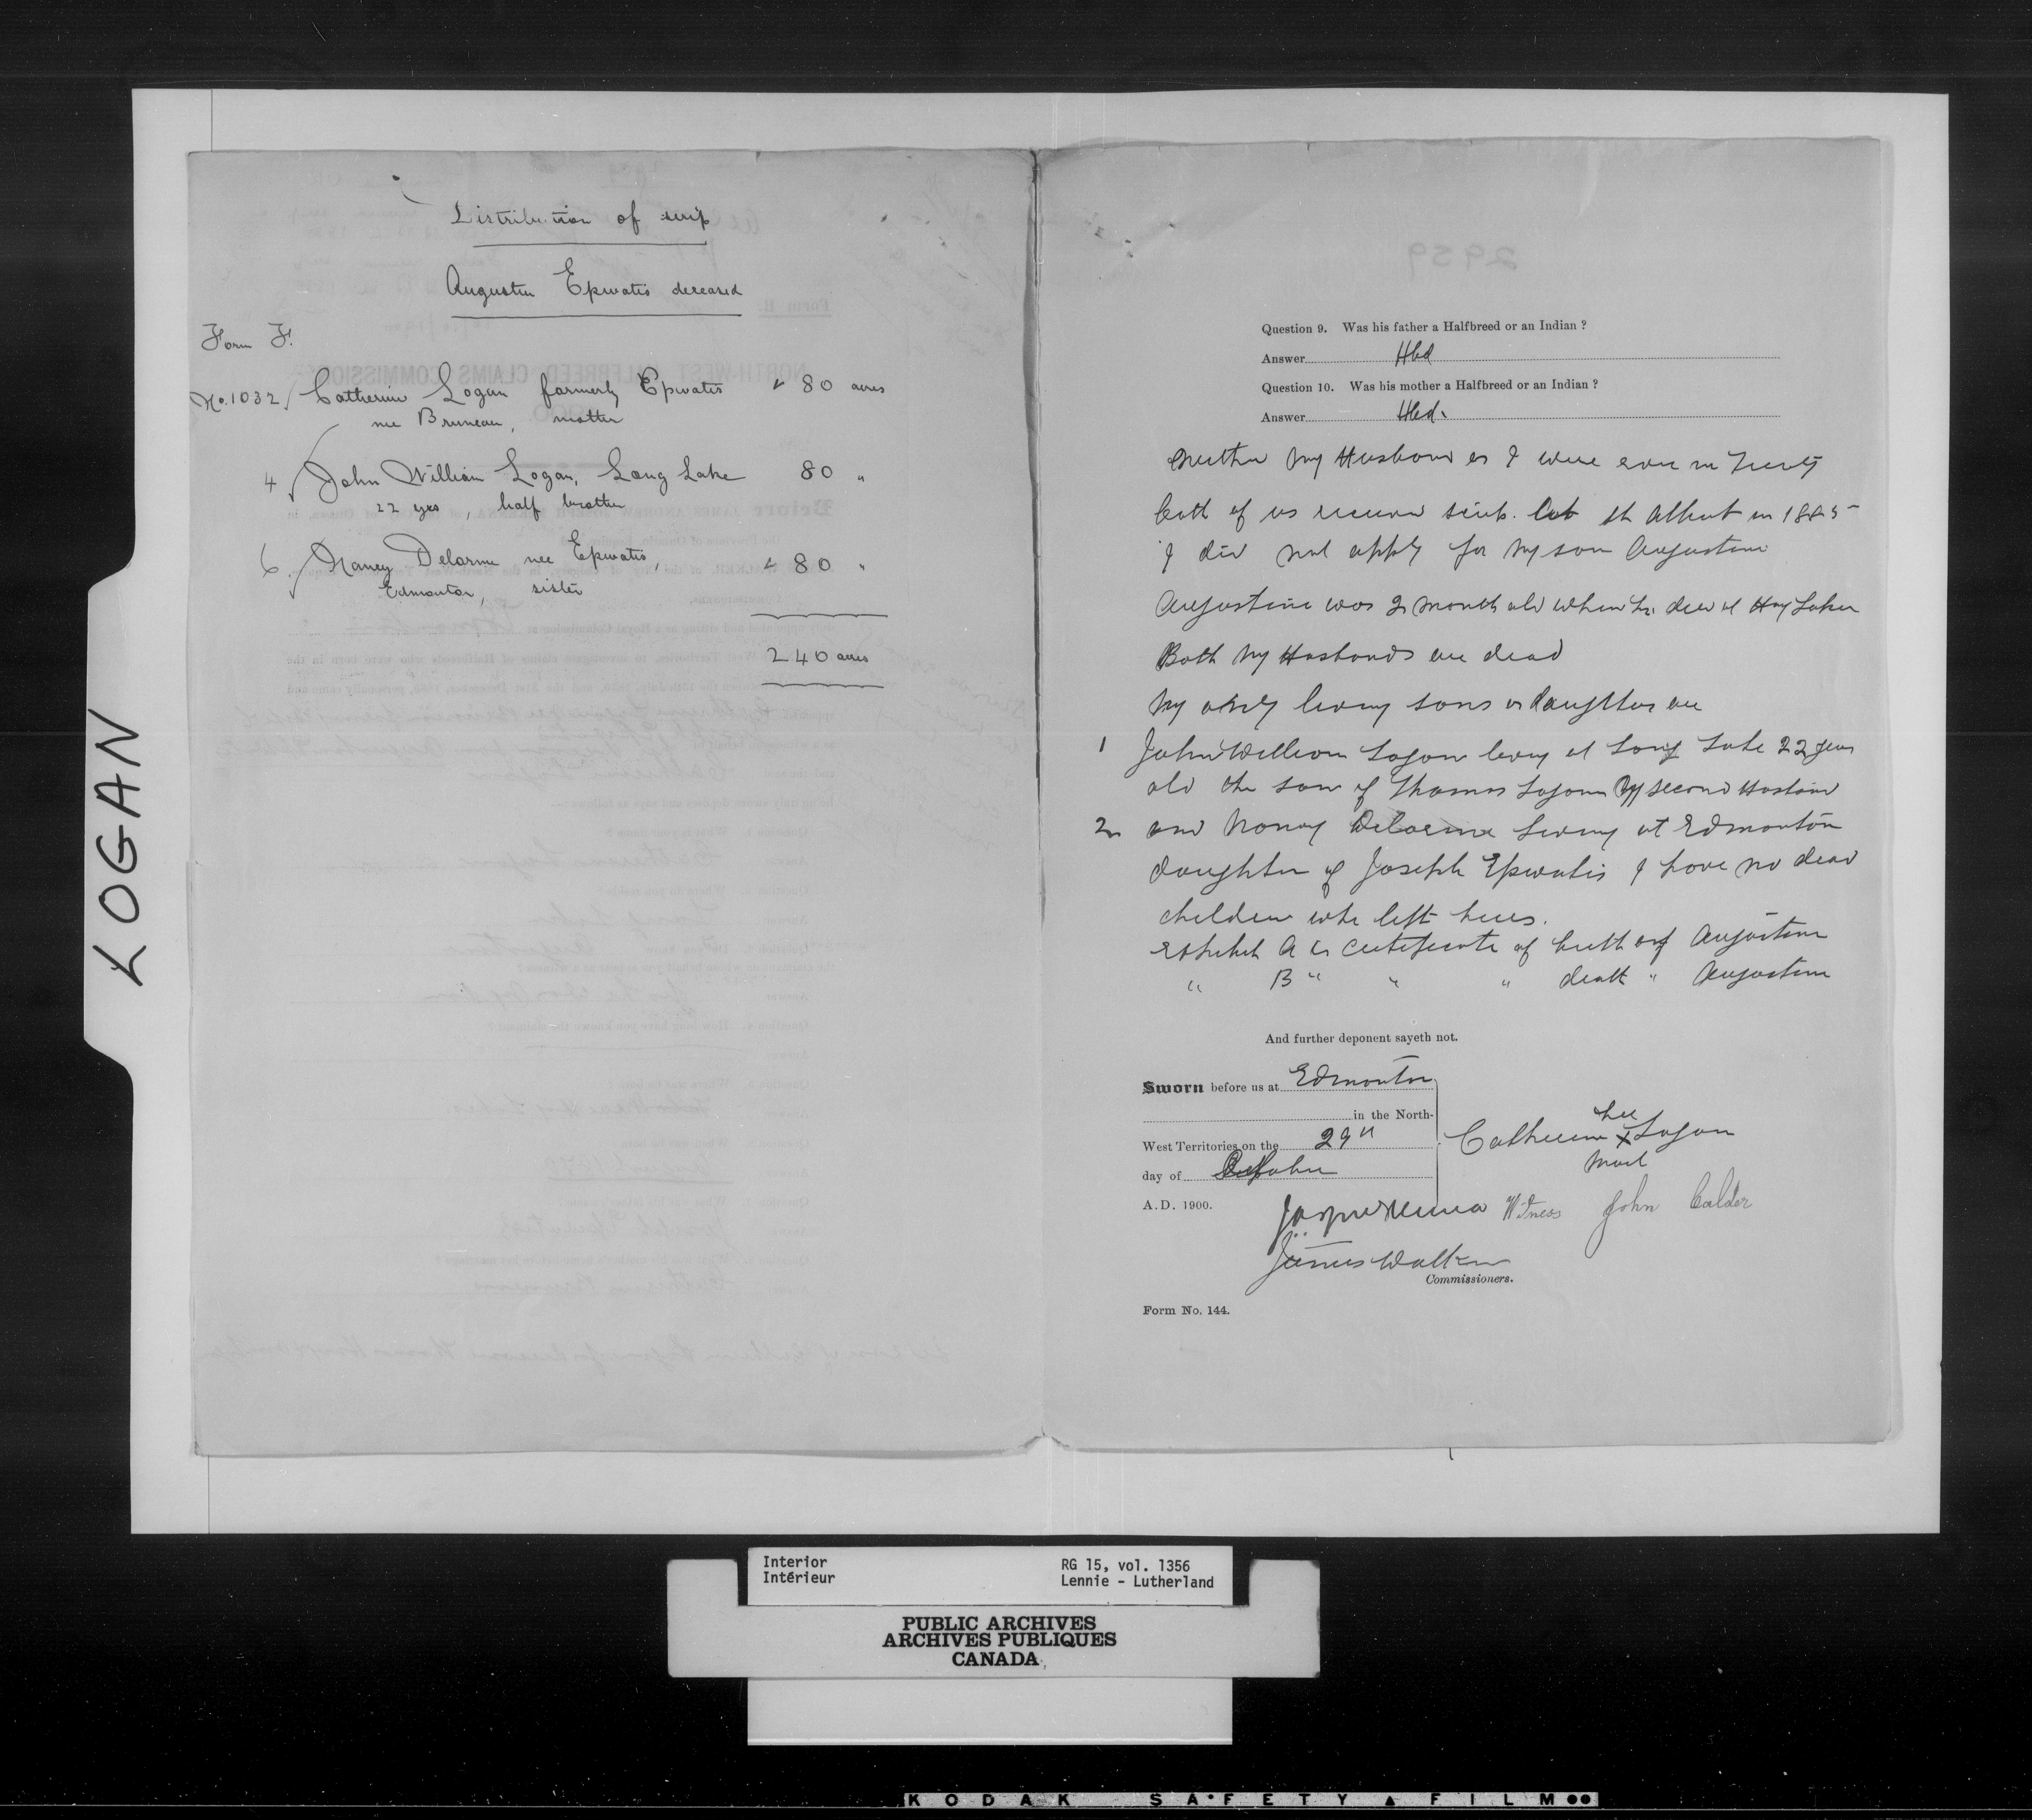 LOGAN
Distribution of scrip
Augustin Epwatis deceased
Form F.
No. 1032 Catherine Logan formerly Epwatis 80 acres
nee Bruneau, mother
4 John William Logan, Long Lake 80 "
22 yrs, half brother
6. Nancy Delorme nee Epwatis, 80 "
Edmonton, sister
240 acres
2959
Question 9. Was his father a Halfbreed or an Indian ?
Answer Hbd
Question 10. Was his mother a Halfbreed or an Indian ?
Answer Hbd.
Neither my Husband or I were ever in Treaty
both of us received scrip. at St Albert in 1885
I did not apply for my son Augustine
Augustine was 2 month old when he died at Hay Lakes
Both my Husbands are dead
My only living sons or daughter are
1 John William Logan living at Long Lake 22 years
old the son of Thomas Logan my second Husband
2 and Nancy Delorme living at Edmonton
daughter of Joseph Epwatis I have no dead
children who left heirs.
Exhibit A is certificate of birth of Augustine
" B " " " death " Augustine
And further deponent sayeth not.
Sworn before us at Edmonton
in the North-
West Territories on the 29th
day of October
A.D. 1900.
her
Catherine X Logan
mark
Witness John Calder
James Walker
Commissioners.
Form No. 144.
Interior
Intérieur
RG 15, vol. 1356
Lennie - Lutherland
PUBLIC ARCHIVES
ARCHIVES PUBLIQUES
CANADA
KODAK SAFETY FILM